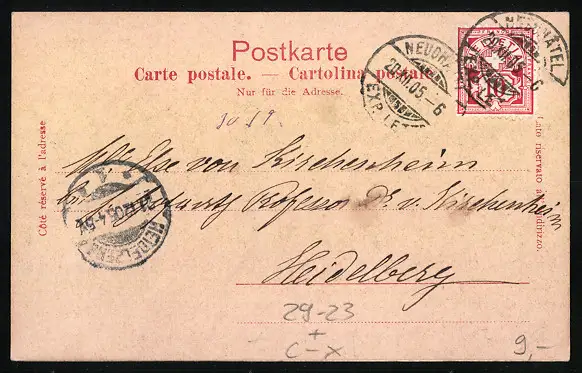 Postkarte
Carte postale. — Cartolina postale.
Nur für die Adresse.
Côté réservé à l'adresse
Lato riservato all'indirizzo.
NEUCHATEL
20.XI.05.-6
EXP. LETT
10
Else von Kirchenheim
Professor Dr. v. Kirchenheim
Heidelberg
HEIDELBERG
29-23
+
C-X
9,-